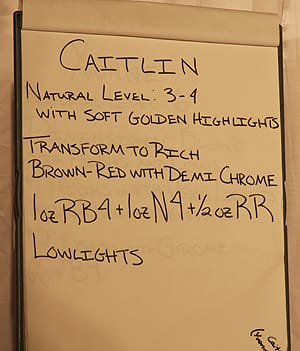 CAITLIN
NATURAL LEVEL: 3-4
WITH SOFT GOLDEN HIGHLIGHTS
TRANSFORM TO RICH
BROWN-RED WITH DEMI CHROME
1oz RB4+1oz N4+½ oz RR
LOWLIGHTS